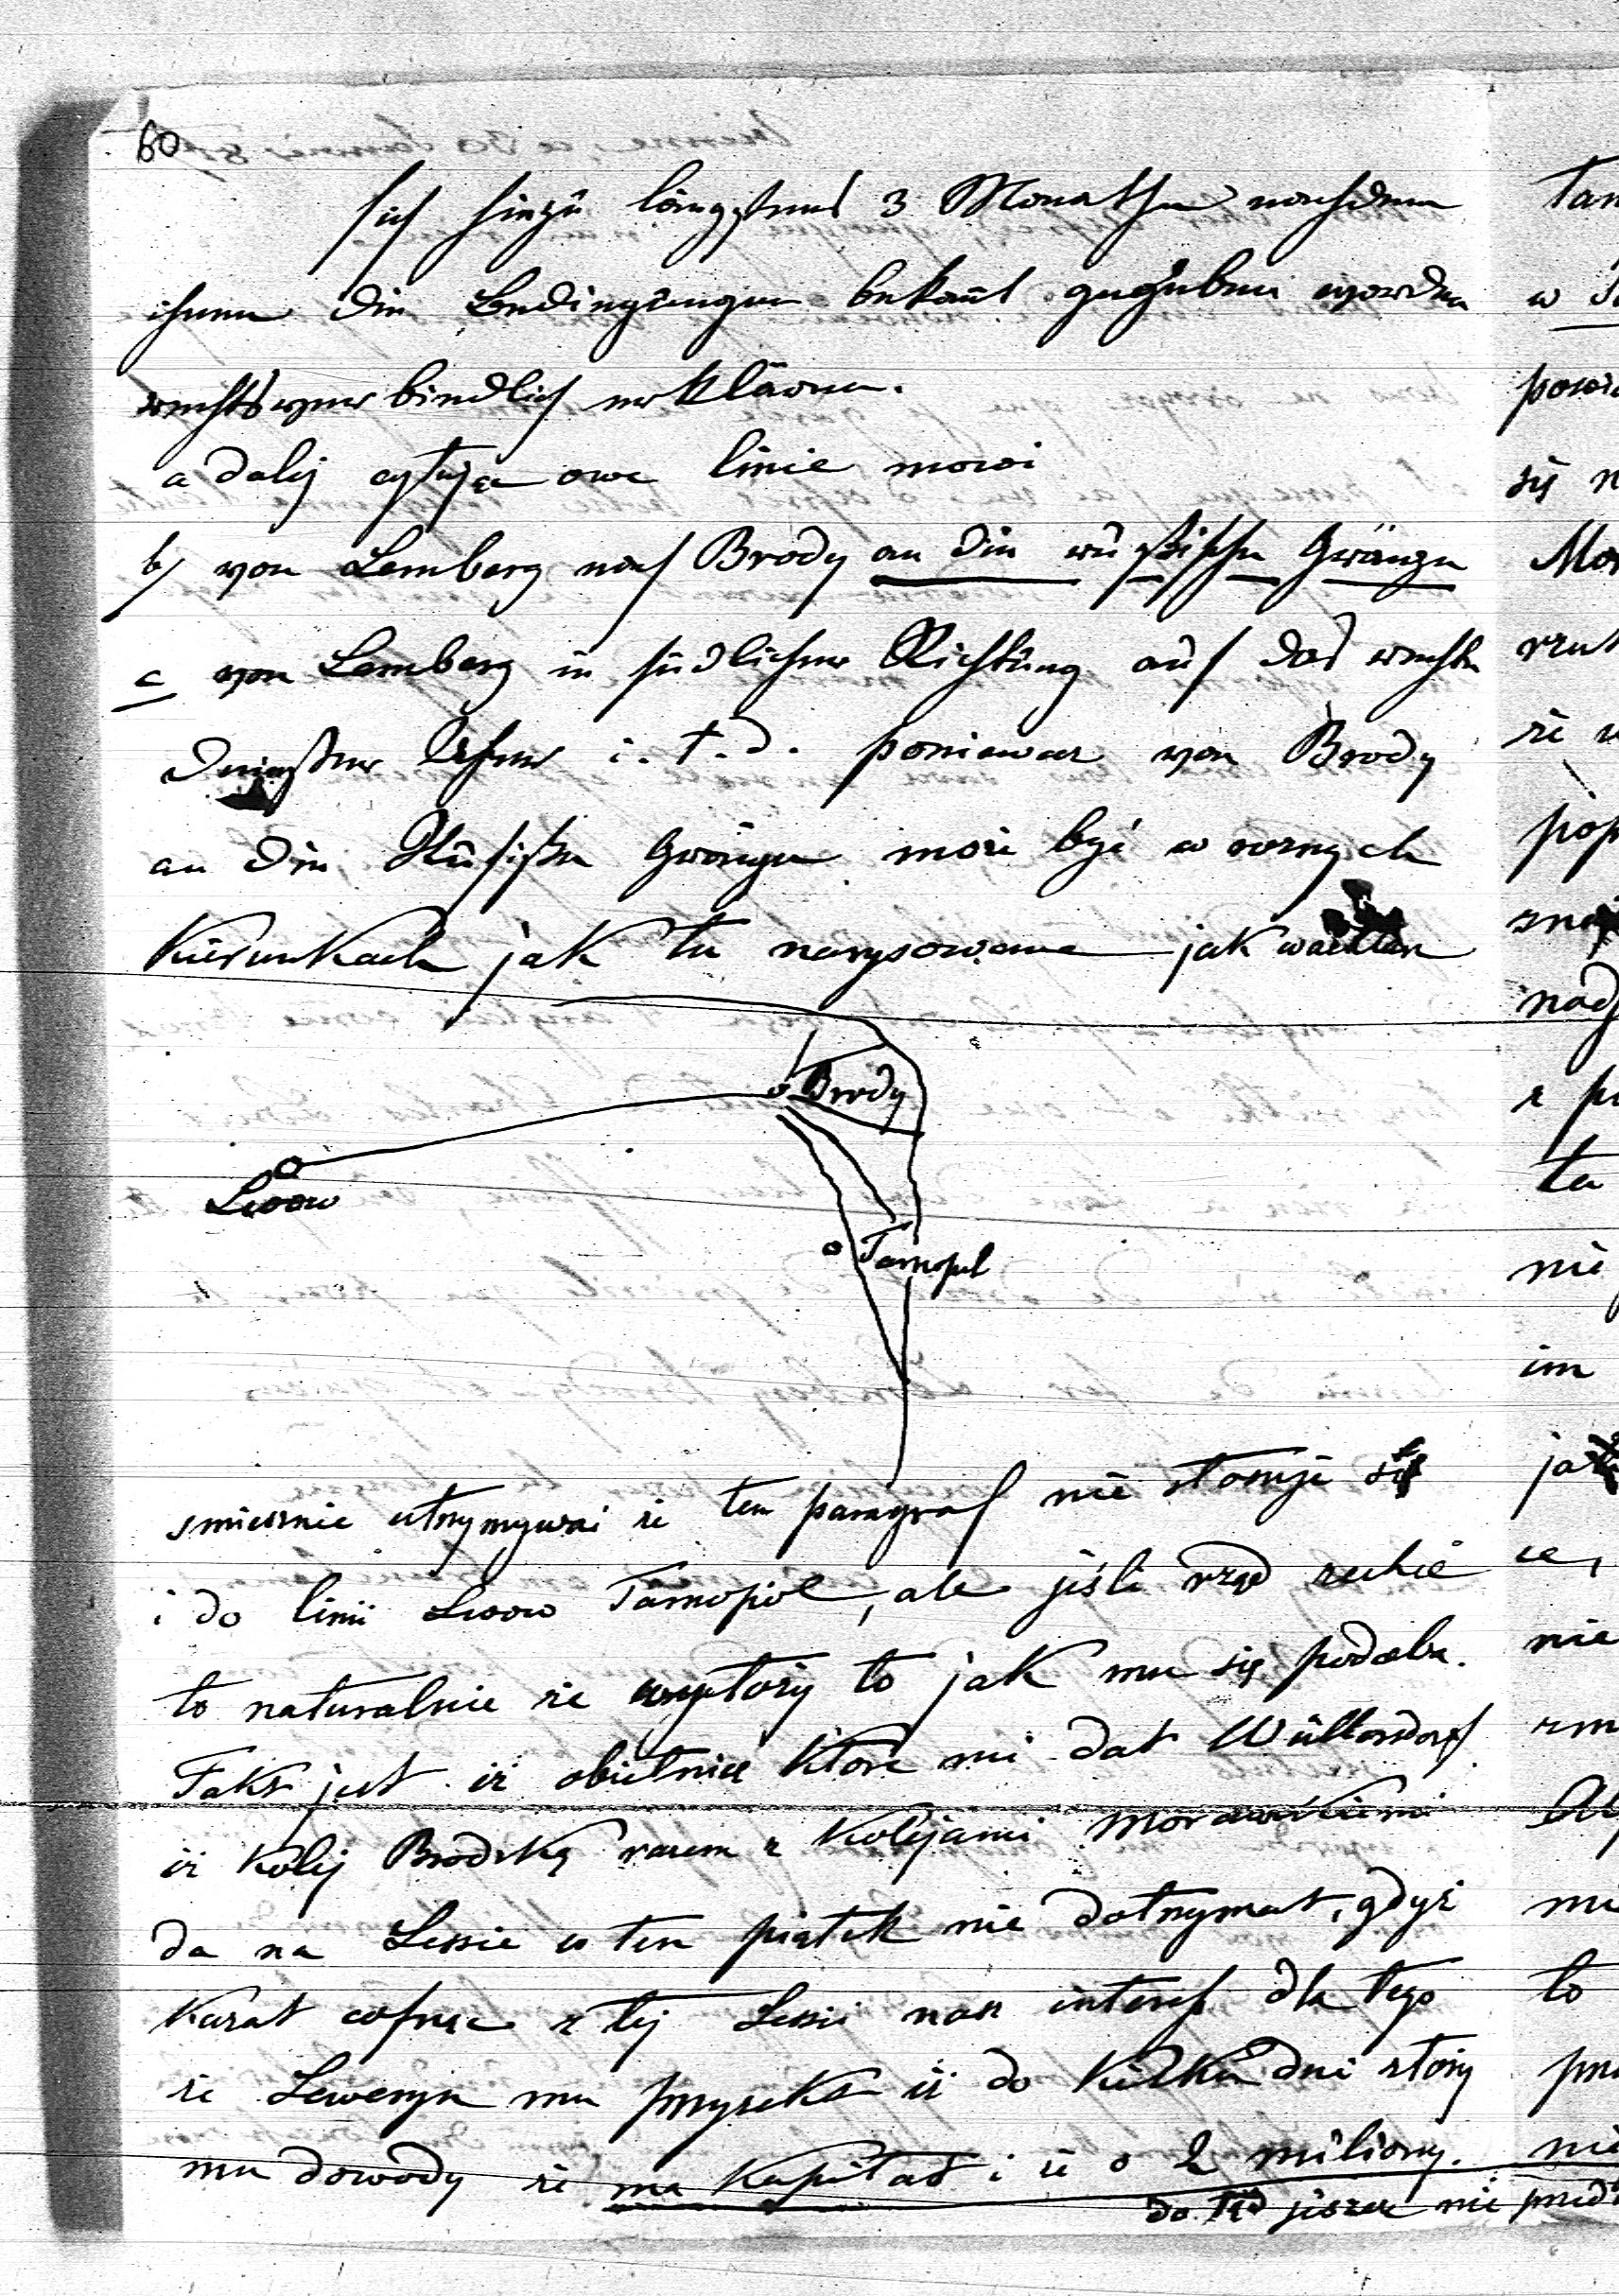 60
sich hiezu längstens 3 Monathe nachdem
ihnen die Bedingungen bekannt gegeben worden
rechtsverbindlich erklären.
a dalij cytując owe linie mowi
b/ von Lemberg nach Brody an die rußische Gränze
c von Lemberg in südlicher Richtung auf das rechte
Dniester Ufer i. t. d. poniewaz von Brody
an die Rußische Gränze może być w roznych
Kierunkach jak tu narysowane jak wachlarz
Brody
Lwow
Tarnopol
smiesznie utrzymywać że ten paragraf nie stosuje się
i do linii Lwow Tarnopol, ale jeśli rząd zechce
to naturalnie że wyłoży to jak mu się podoba.
Fakt jest iż obietnice które mi dał Wüllersdorf
iż kolej Brodzką razem z Kolejami Morawskiemi
da na Sessie w ten piątek nie dotrzymał, gdyż
Kazał cofnąć z tej Sessii nasz interes dla tego
że Seweryn mu przyrzekł iż do kilku dni złoży
mu dowody że ma Kapitał i że o 2 miliony.
do tąd jeszcze nie